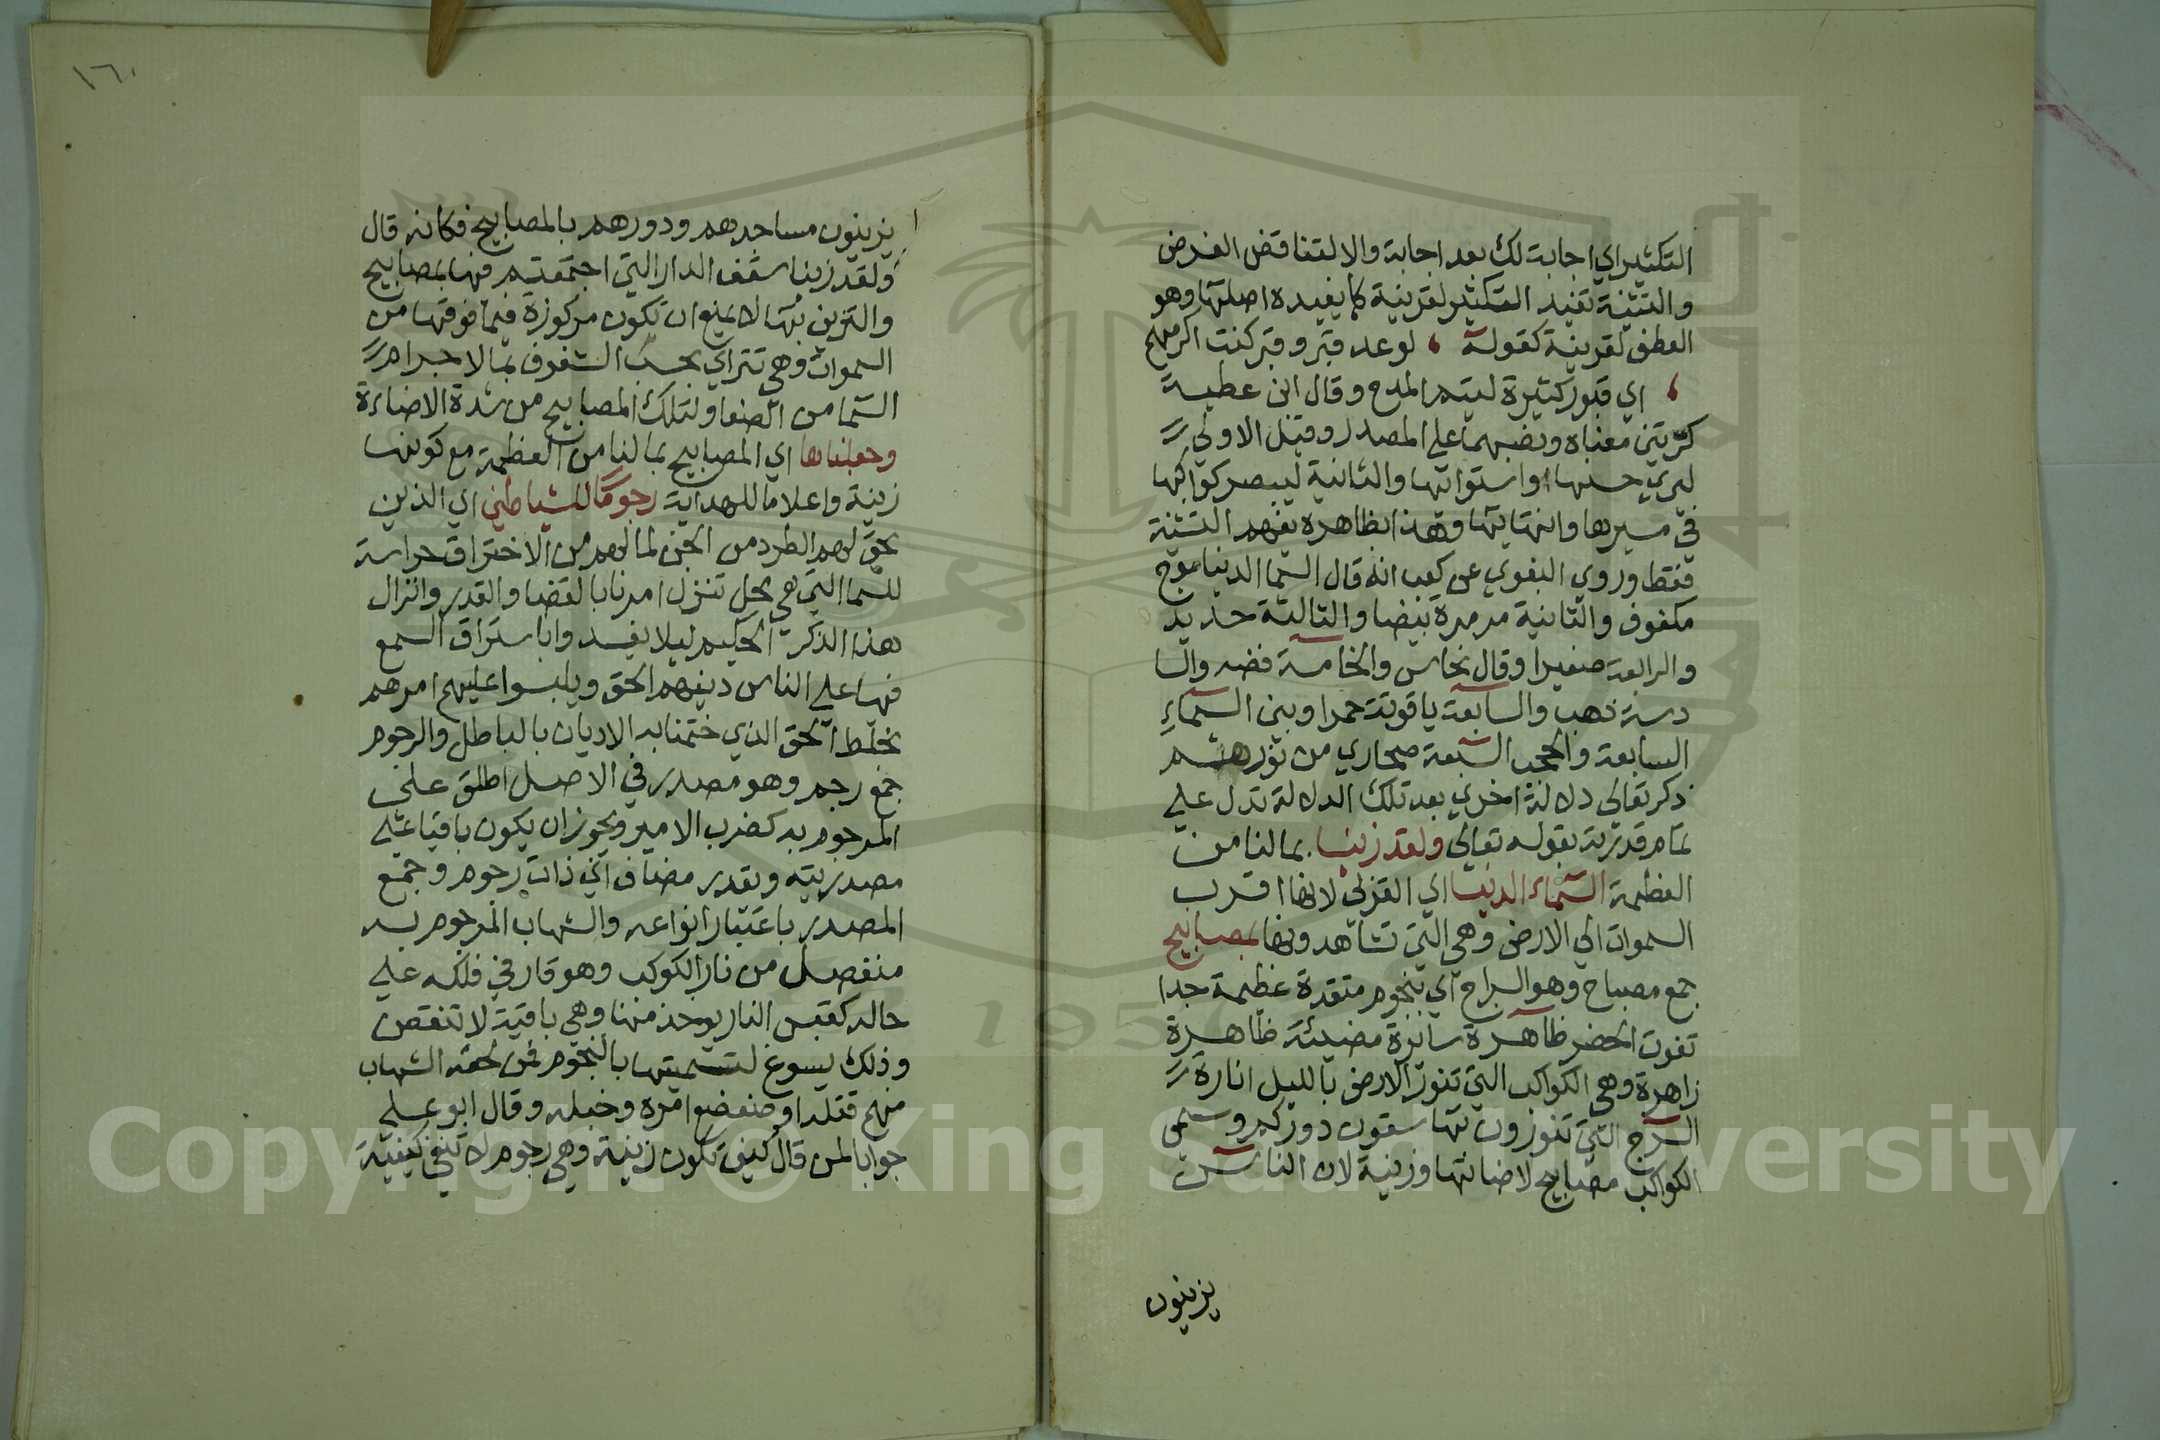 التكثير اي اجابة لك بعد اجابة والا لتناقض الغرض
والتثنية تفيد التكثير لقرينة كما يفيده اصلها وهو
العطف لقرينة كقوله ، لوعد قبر وقبر كنت اكرمهم
، اي قبور كثيرة ليتم المدح وقال ابن عطية
كرتين معناه ونصبهما على المصدر وقيل الاولى
ليري حسنها واستوائها والثانية ليبصر كواكبها
في سيرها وانتهائها وهذا بظاهره يفهم التثنية
فقط وروي البغوي عن كعب انه قال السما الدنيا موج
مكفوف والثانية مرمرة بيضا والثالثة حديد
والرابعة صفيرا وقال نحاس والخامسة فضه والسا
دسة ذهب والسابعة ياقوتة حمرا وبين السماء
السابعة والحجب السبعة صحاري من نور ثم
ذكر تعالى دلالة اخري بعد تلك الدلالة تدل على
تمام قدرته بقوله تعالى ولقد زينا بما لنا من
العظمة السماء الدنيا اي القربي لانها اقرب
السموات الي الارض وهي التي تشاهدونها بمصابيح
جمع مصباح وهو السراج اي بنجوم متقدة عظيمة جدا
تفوت الحصر ظاهرة سائرة مضيئة ظاهرة
زاهرة وهي الكواكب التي تنور الارض بالليل انارة
السرج التي تنورون بها سقوف دوركم وسمى
الكواكب مصابيح لاضائتها وزينة لان الناس
يزينون
١٦٠
يزينون مساجدهم ودورهم بالمصابيح فكانه قال
ولقد زينا سقف الدار التي اجتمعتم فيها بمصابيح
والتزين بها لا يمنع ان تكون مركوزة فيما فوقها من
السموات وهي تتراي بحسب الشفوف بما لاجرام
السما من الصفا ولتلك المصابيح من شدة الاضاءة
وجعلناها اي المصابيح بما لنا من العظمة مع كونها
زينة واعلاما للهداية رجوما للشياطين اي الذين
يحق لهم الطرد من الجن لما لهم من الاختراق حراسة
للسما التي هي محل تنزل امرنا بالقضا والقدر وانزال
هذا الذكر الحكيم ليلا يفسدوا باستراق السمع
فيها على الناس دينهم الحق ويلبسوا عليهم امرهم
بخلط الحق الذي ختمنا به الاديان بالباطل والرجوم
جمع رجم وهو مصدر في الاصل اطلق على
المرجوم به كضرب الامير ويجوز ان يكون باقيا على
مصدريته ويقدر مضاف اي ذات رجوم وجمع
المصدر باعتبار انواعه والشهاب المرجوم به
منفصل من نار الكوكب وهو قار في فلكه على
حاله كقبس النار يوخذ منها وهي باقية لا تنقص
وذلك يسوغ لتسميتها بالنجوم فمن لحقه الشهاب
منهم قتله او ضعضع امره وخبله وقال ابو علي
جوابا لمن قال كيف تكون زينة وهي رجوم لا تبقى كيفية
1957
Copyright © King Saud University